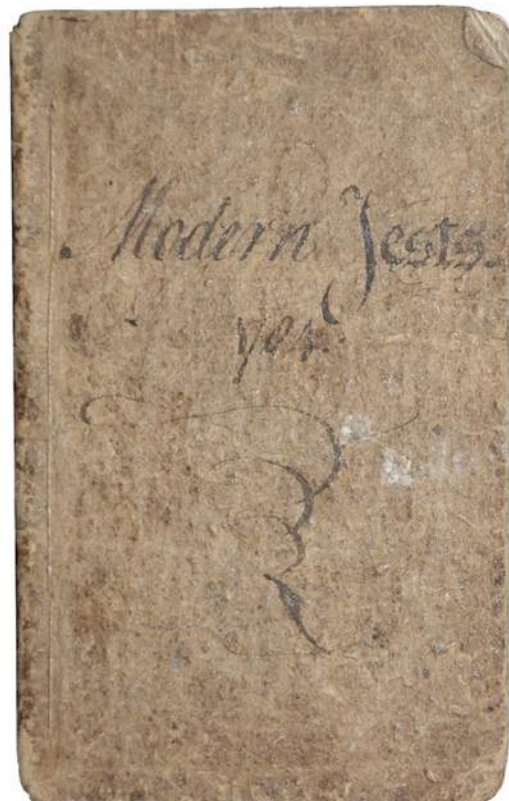 Modern Jests.